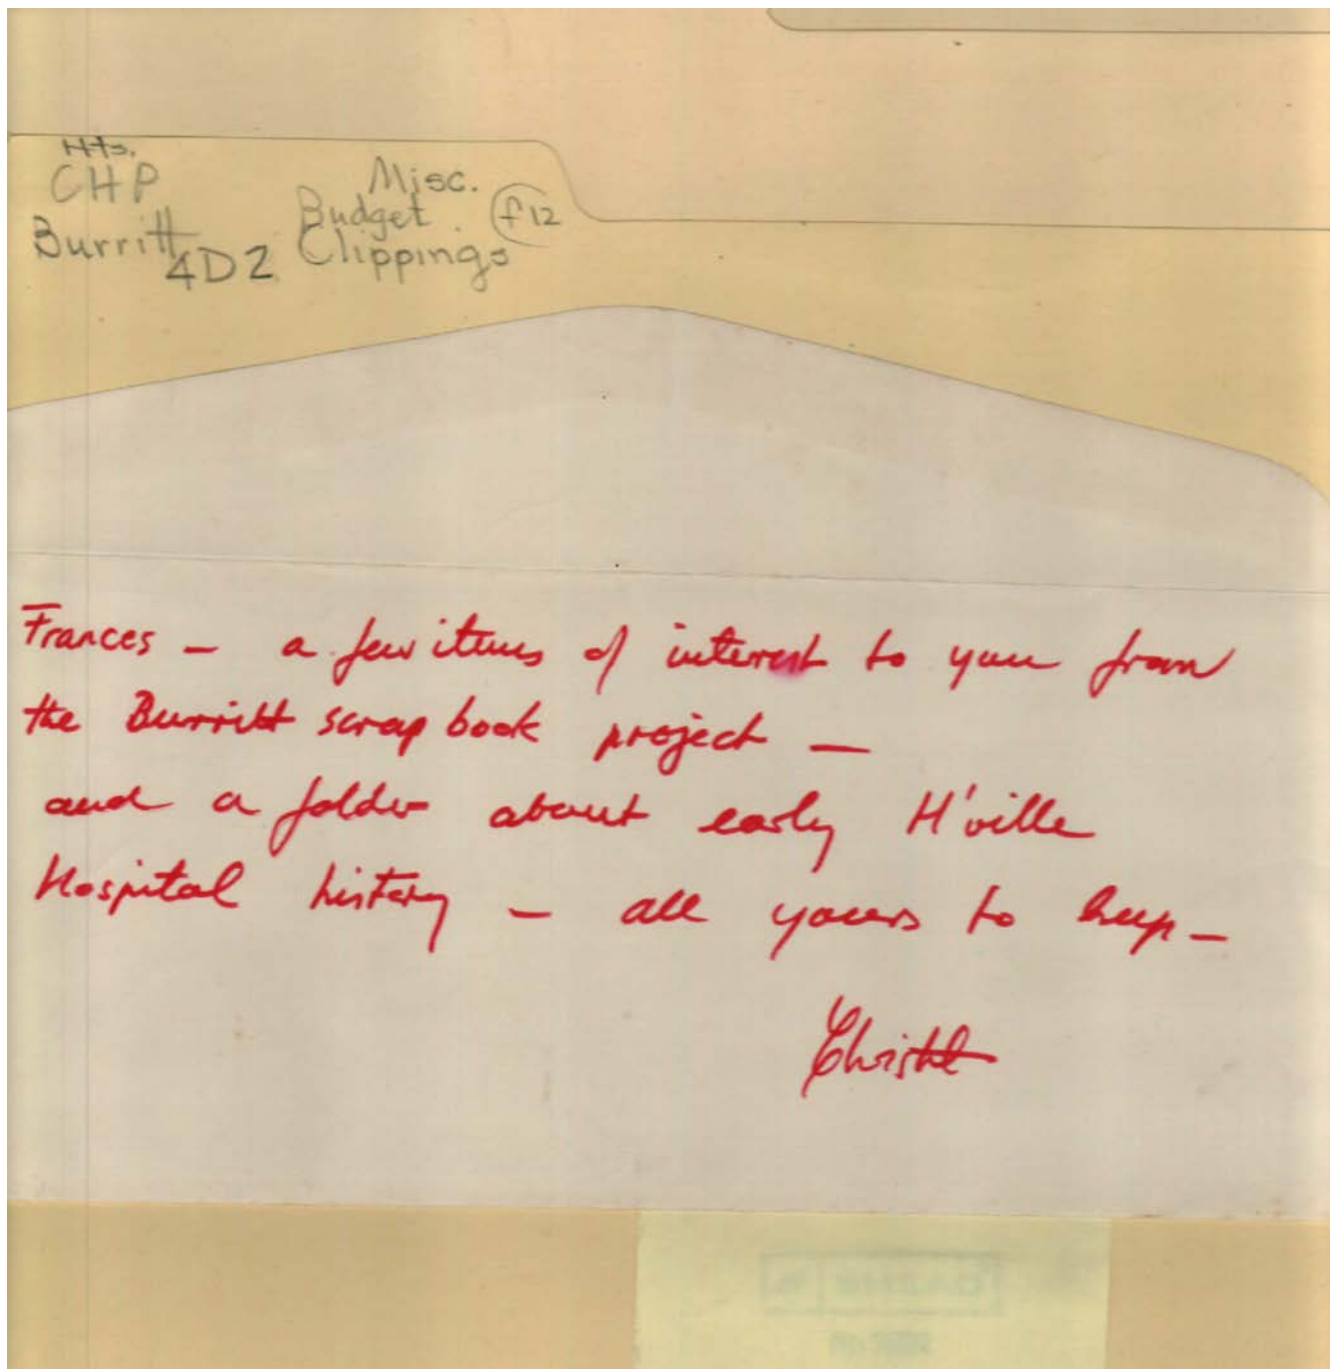 Hts.
CHP
Burritt
4D2
Misc.
Budget
Clippings
f12
Frances – a few items of interest to you from
the Burritt scrap book project –
and a folder about early H'ville
Hospital history – all yours to keep –